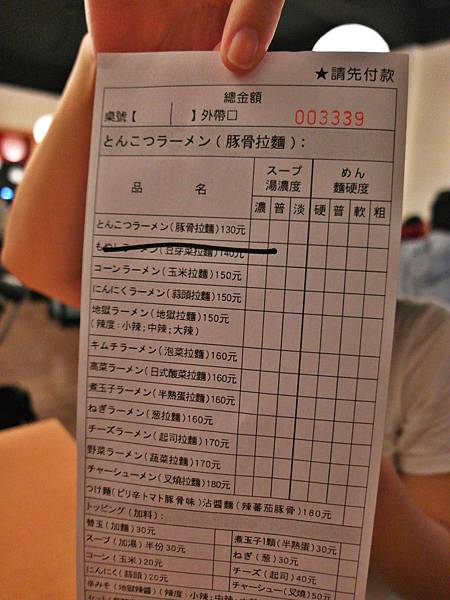 ★請先付款
總金額
桌號【 】外帶□ 003339
とんこつラーメン(豚骨拉麵):
品 名 スープ 湯濃度 めん 麵硬度
濃 普 淡 硬 普 軟 粗
とんこつラーメン(豚骨拉麵)130元
もやしラーメン(豆芽菜拉麵)140元
コーンラーメン(玉米拉麵)150元
にんにくラーメン(蒜頭拉麵)150元
地獄ラーメン(地獄拉麵)150元
(辣度:小辣;中辣;大辣)
キムチラーメン(泡菜拉麵)160元
高菜ラーメン(日式酸菜拉麵)160元
煮玉子ラーメン(半熟蛋拉麵)160元
ねぎラーメン(葱拉麵)160元
チーズラーメン(起司拉麵)170元
野菜ラーメン(蔬菜拉麵)170元
チャーシューメン(叉燒拉麵)180元
つけ麵(ピリ辛トマト豚骨味)沾醬麵(辣蕃茄豚骨)180元
トッピング(加料):
替玉(加麵)30元 煮玉子1顆(半熟蛋)30元
スープ(加湯)半份30元 ねぎ(葱)30元
コーン(玉米)20元 チーズ(起司)40元
にんにく(蒜頭)20元 チャーシュー(叉燒)50元
辛みそ(地獄辣醬)(辣度:小辣;中辣;大辣)